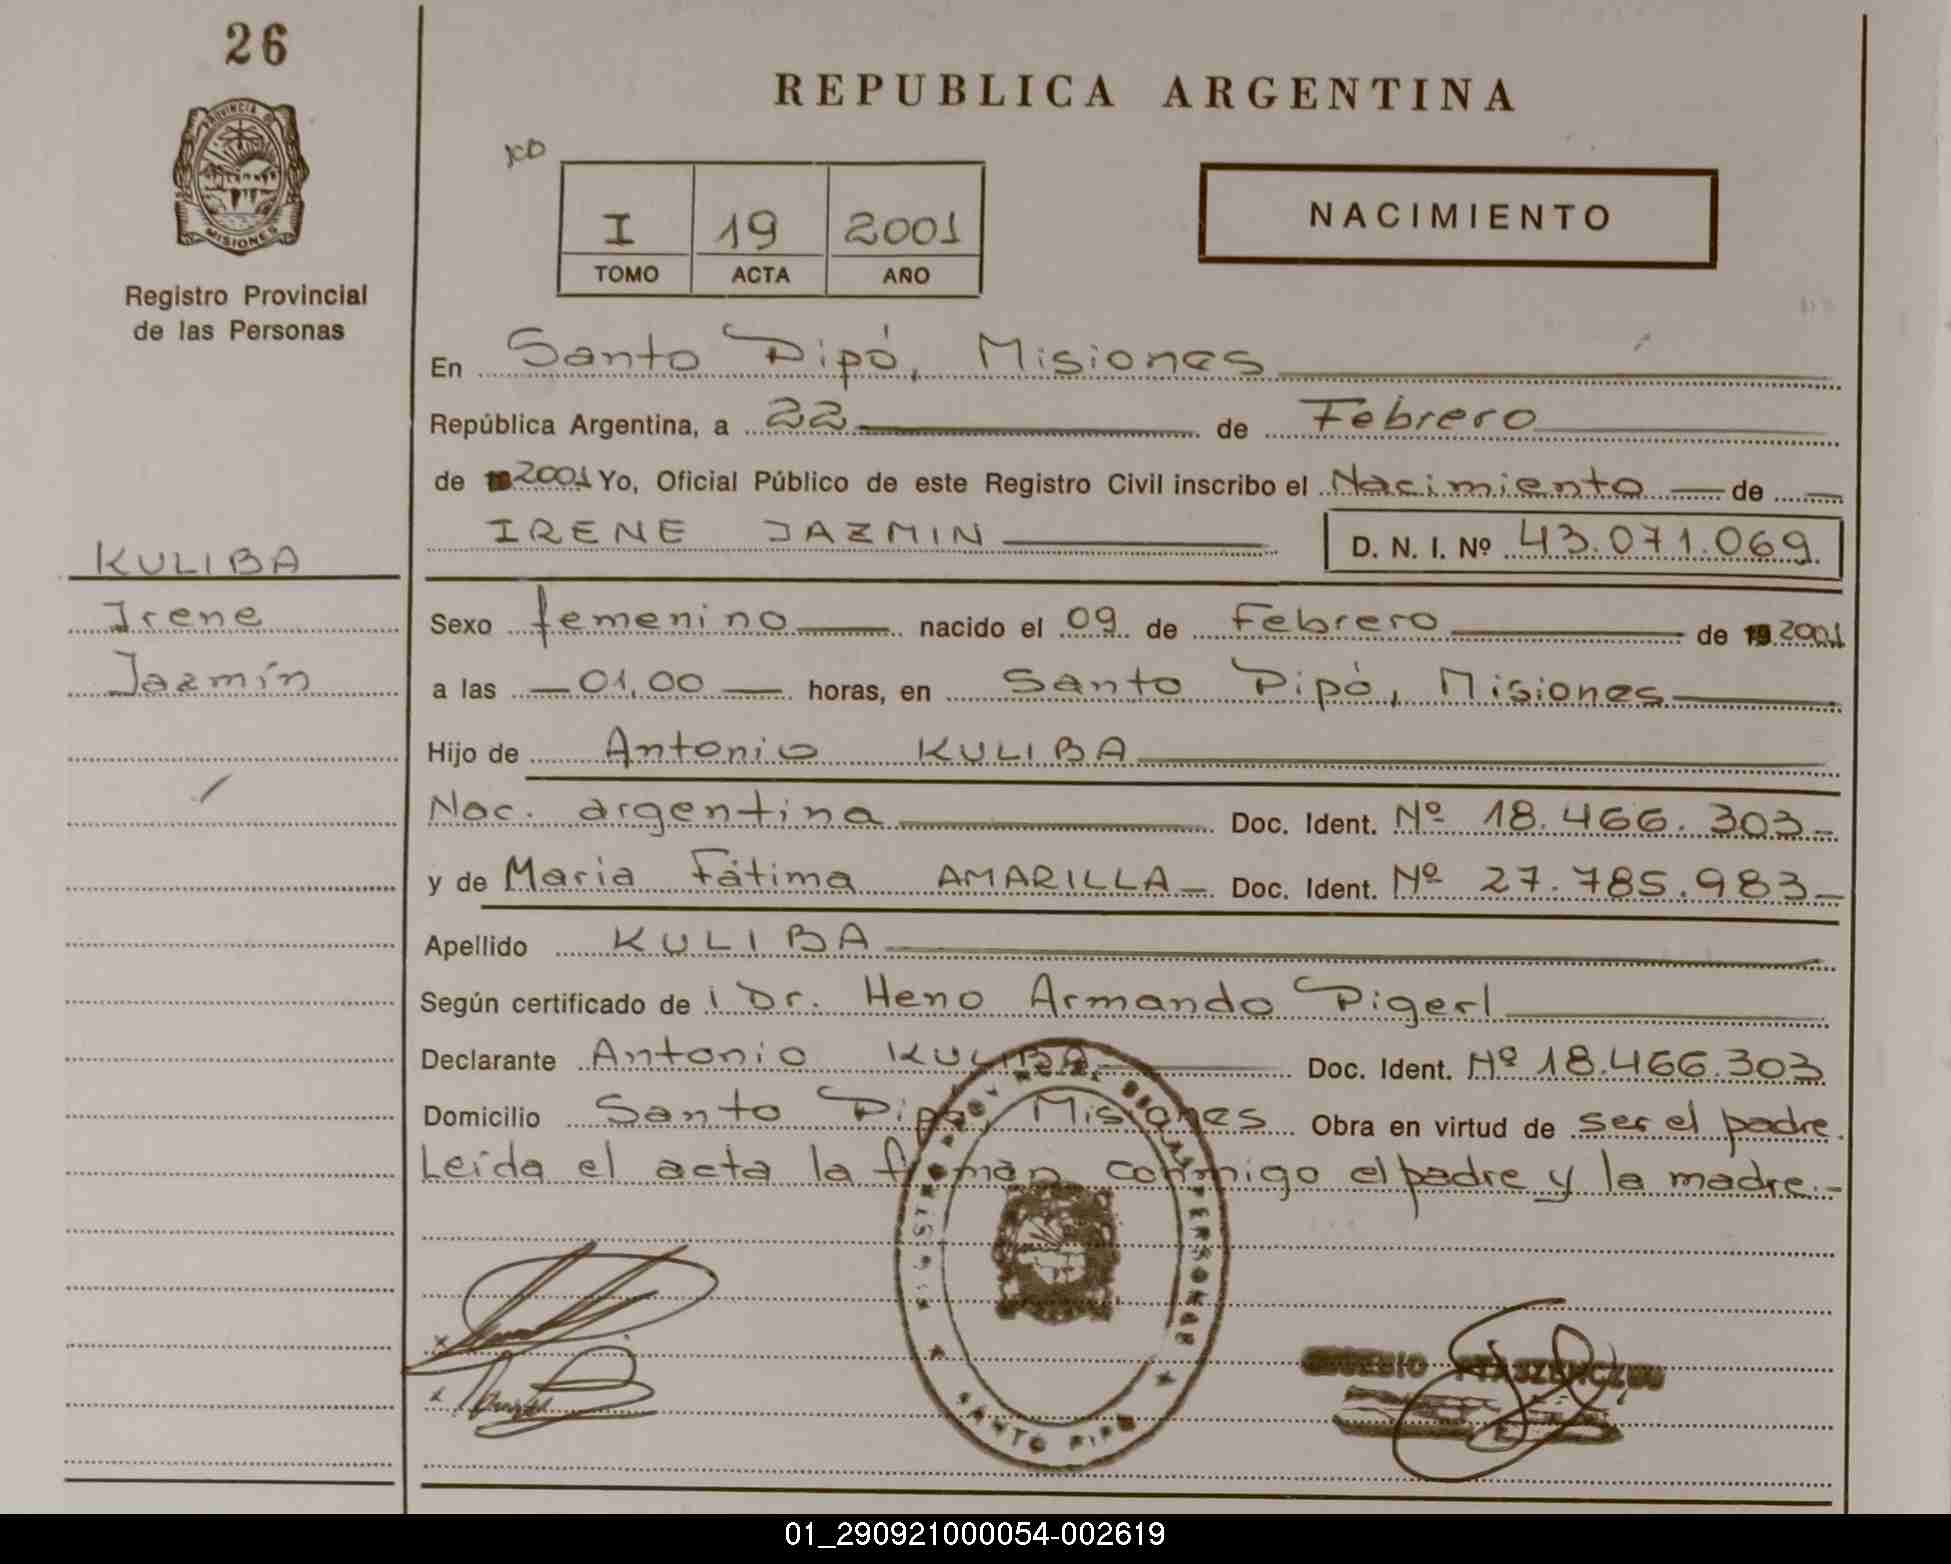 26
PROVINCIA DE
MISIONES
Registro Provincial
de las Personas
REPUBLICA ARGENTINA
I 19 2001
TOMO ACTA AÑO
NACIMIENTO
En Santo Pipó, Misiones
República Argentina, a 22 de Febrero
de 2001 Yo, Oficial Público de este Registro Civil inscribo el Nacimiento de
IRENE JAZMIN D. N. I. Nº 43.071.069
KULIBA
Irene
Jazmín
Sexo femenino nacido el 09 de Febrero de 19 2001
a las 01,00 horas, en Santo Pipó, Misiones
Hijo de Antonio KULIBA
Nac. argentina Doc. Ident. Nº 18.466.303
y de Maria Fátima AMARILLA Doc. Ident. Nº 27.785.983
Apellido KULIBA
Según certificado de Dr. Heno Armando Pigerl
Declarante Antonio KULIBA Doc. Ident. Nº 18.466.303
Domicilio Santo Pipó, Misiones Obra en virtud de ser el padre.
Leida el acta la firman conmigo el padre y la madre.-
MISIONES
PERSONAS
SANTO PIPO
01_290921000054-002619